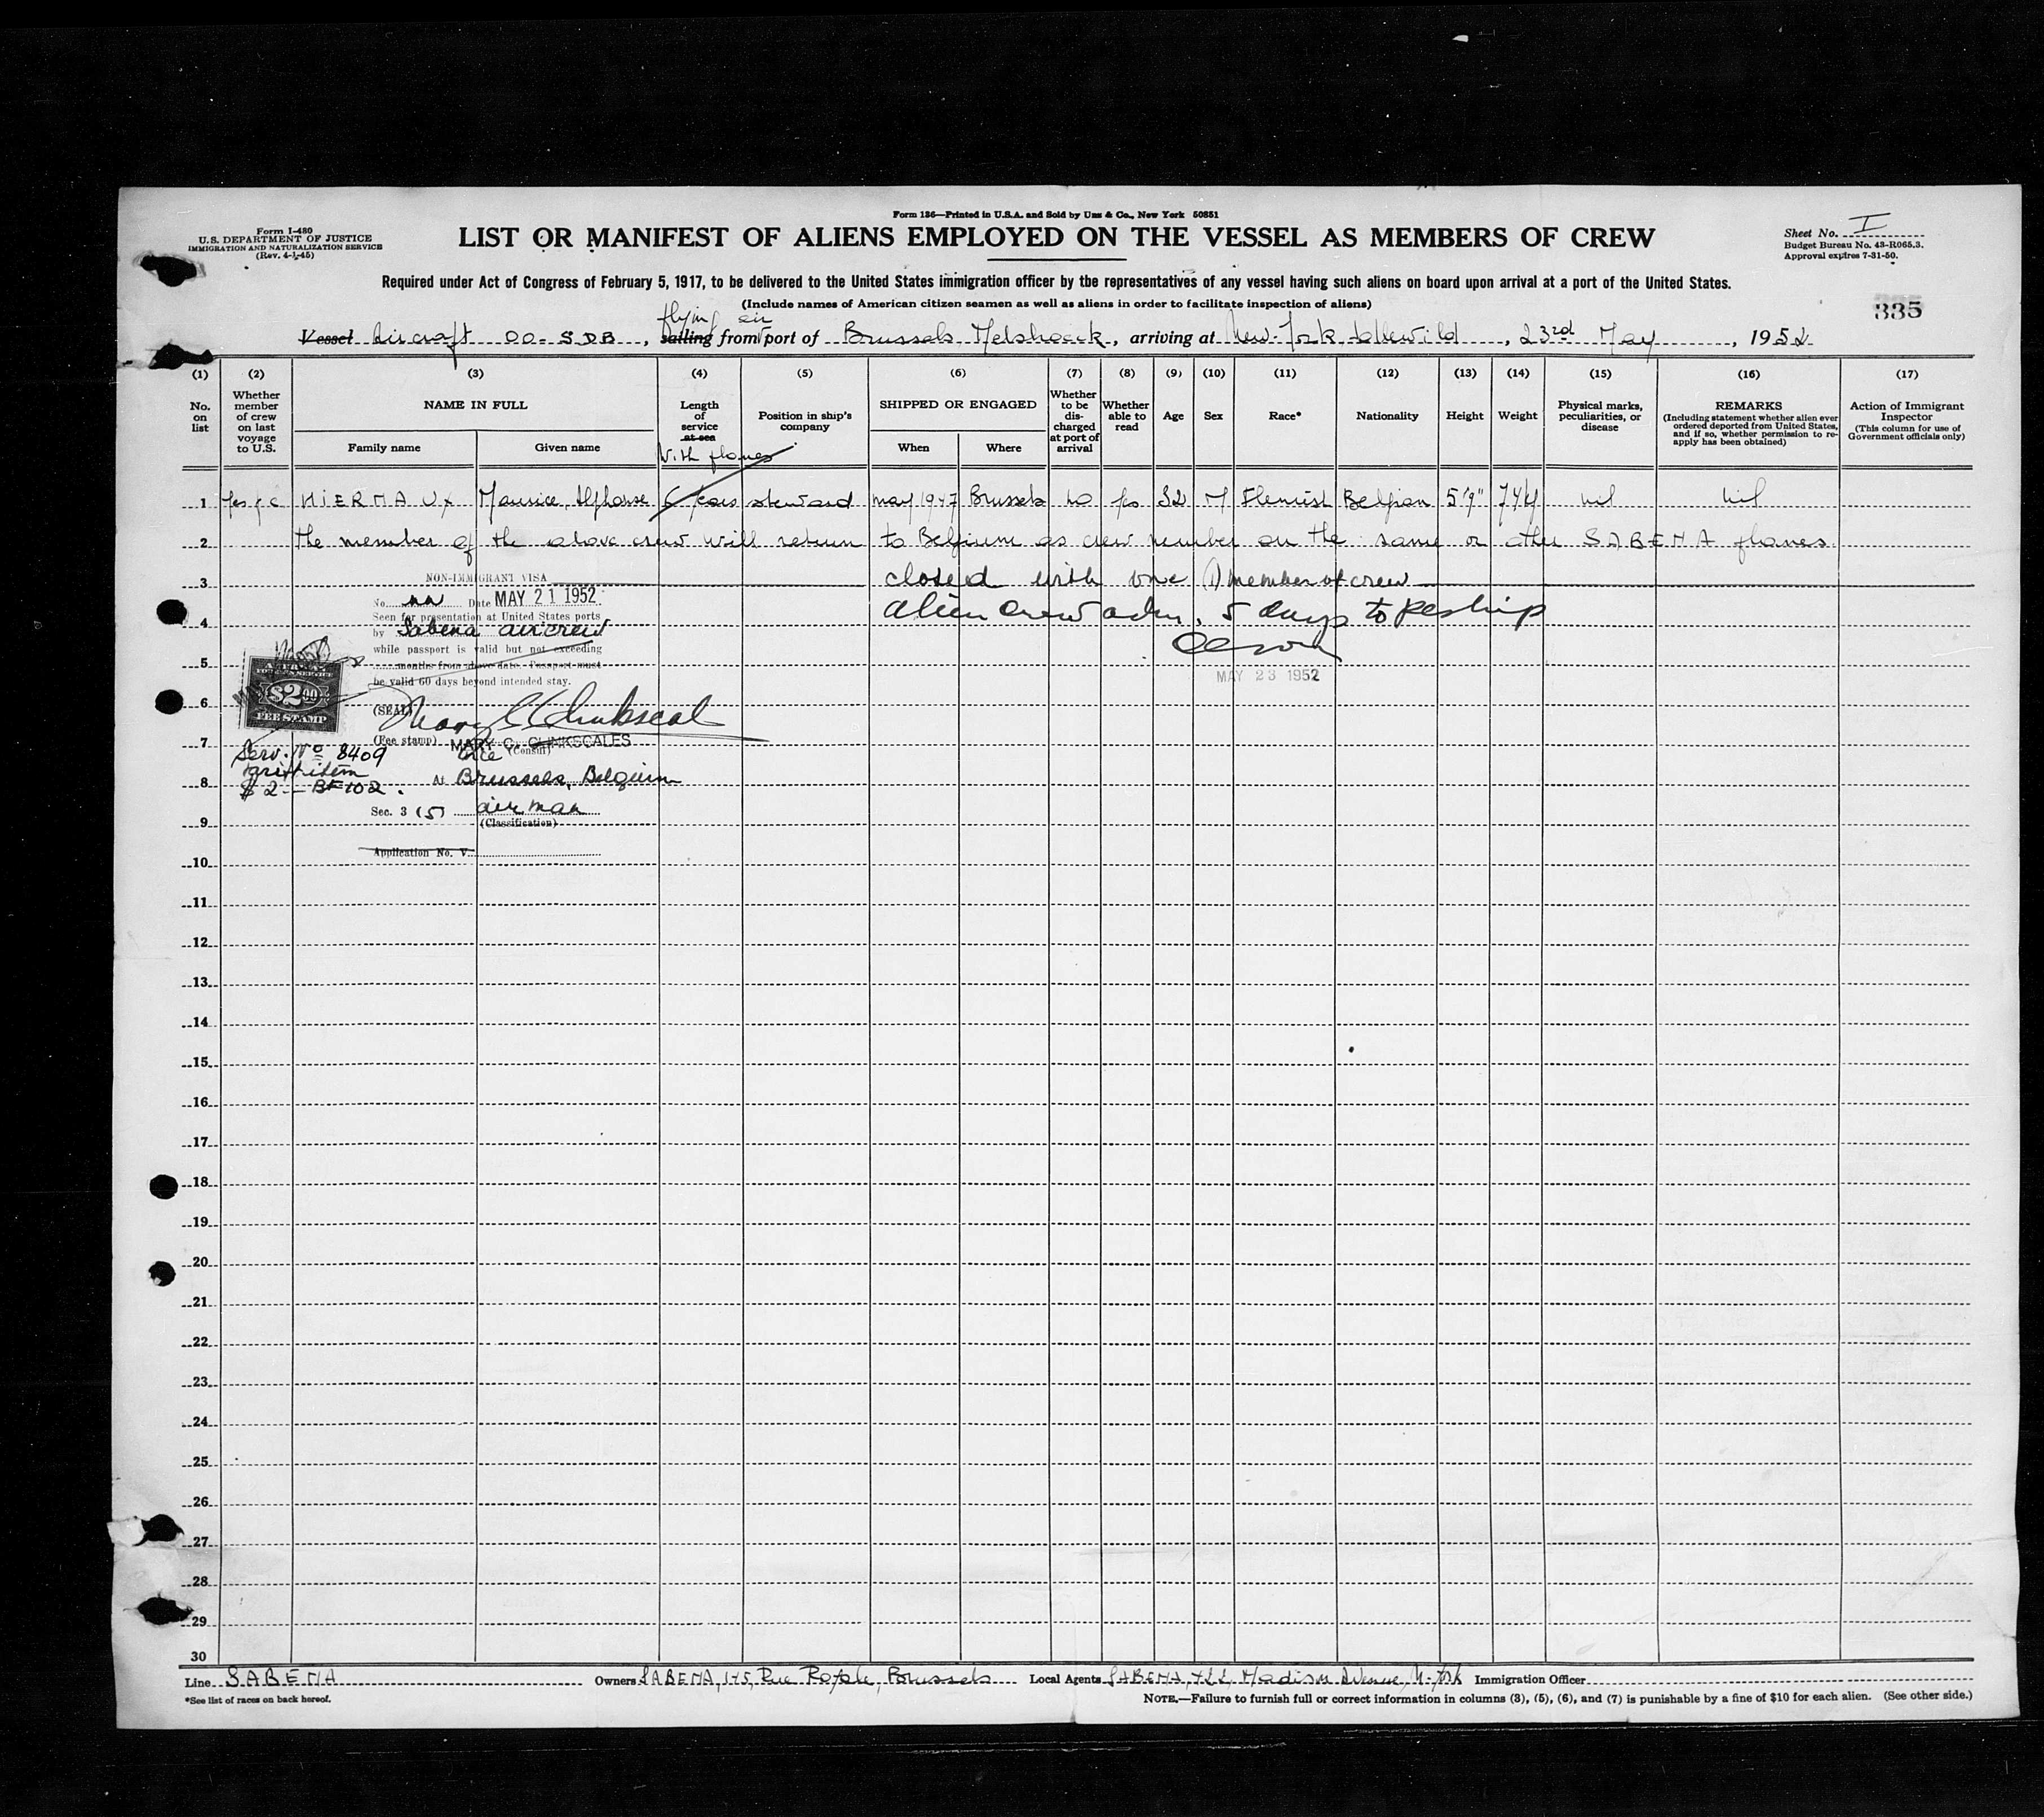 Form 136—Printed in U.S.A. and Sold by Unz & Co., New York 50851
Form I-480
U.S. DEPARTMENT OF JUSTICE
IMMIGRATION AND NATURALIZATION SERVICE
(Rev. 4-1-45)
LIST OR MANIFEST OF ALIENS EMPLOYED ON THE VESSEL AS MEMBERS OF CREW
Sheet No. I
Budget Bureau No. 43-R065.3.
Approval expires 7-31-50.
Required under Act of Congress of February 5, 1917, to be delivered to the United States immigration officer by the representatives of any vessel having such aliens on board upon arrival at a port of the United States.
(Include names of American citizen seamen as well as aliens in order to facilitate inspection of aliens)
335
flying air
Vessel Aircraft OO-SDB, sailing from port of Brussels Melsbroeck, arriving at New-York Idlewild, 23rd May, 1952
(1) (2) (3) (4) (5) (6) (7) (8) (9) (10) (11) (12) (13) (14) (15) (16) (17)
No. on list
Whether member of crew on last voyage to U.S.
NAME IN FULL
Family name
Given name
Length of service at sea
With planes
Position in ship's company
SHIPPED OR ENGAGED
When
Where
Whether to be discharged at port of arrival
Whether able to read
Age
Sex
Race*
Nationality
Height
Weight
Physical marks, peculiarities, or disease
REMARKS
(Including statement whether alien ever ordered deported from United States, and if so, whether permission to reapply has been obtained)
Action of Immigrant Inspector
(This column for use of Government officials only)
1 yes MIERMAUX Maurice, Alphonse 6 years steward may 1947 Brussels no yes 32 M Flemish Belgian 5'9" 74kg nil nil
2 the member of the above crew will return to Belgium as crew member on the same or other SABENA planes.
3 closed with one (1) member of crew
4 alien crew adm. 5 days to reship
MAY 23 1952
NON-IMMIGRANT VISA
No. Date MAY 21 1952
Seen for presentation at United States ports
by Sabena aircrew
while passport is valid but not exceeding
months from above date. Passport must
be valid 60 days beyond intended stay.
$2.00
FEE STAMP
(SEAL) Mary C Clinkscales
(Fee stamp) MARY C. CLINKSCALES
Vice (Consul)
At Brussels, Belgium
Sec. 3 (5) airman
(Classification)
Application No. V
Serv. No 8409
tariff item
$ 2 — BF 102.
5
6
7
8
9
10
11
12
13
14
15
16
17
18
19
20
21
22
23
24
25
26
27
28
29
30
Line SABENA Owners SABENA, 145, Rue Royale, Brussels Local Agents SABENA, 422, Madison Avenue, N-York Immigration Officer
*See list of races on back hereof.
NOTE.—Failure to furnish full or correct information in columns (3), (5), (6), and (7) is punishable by a fine of $10 for each alien. (See other side.)